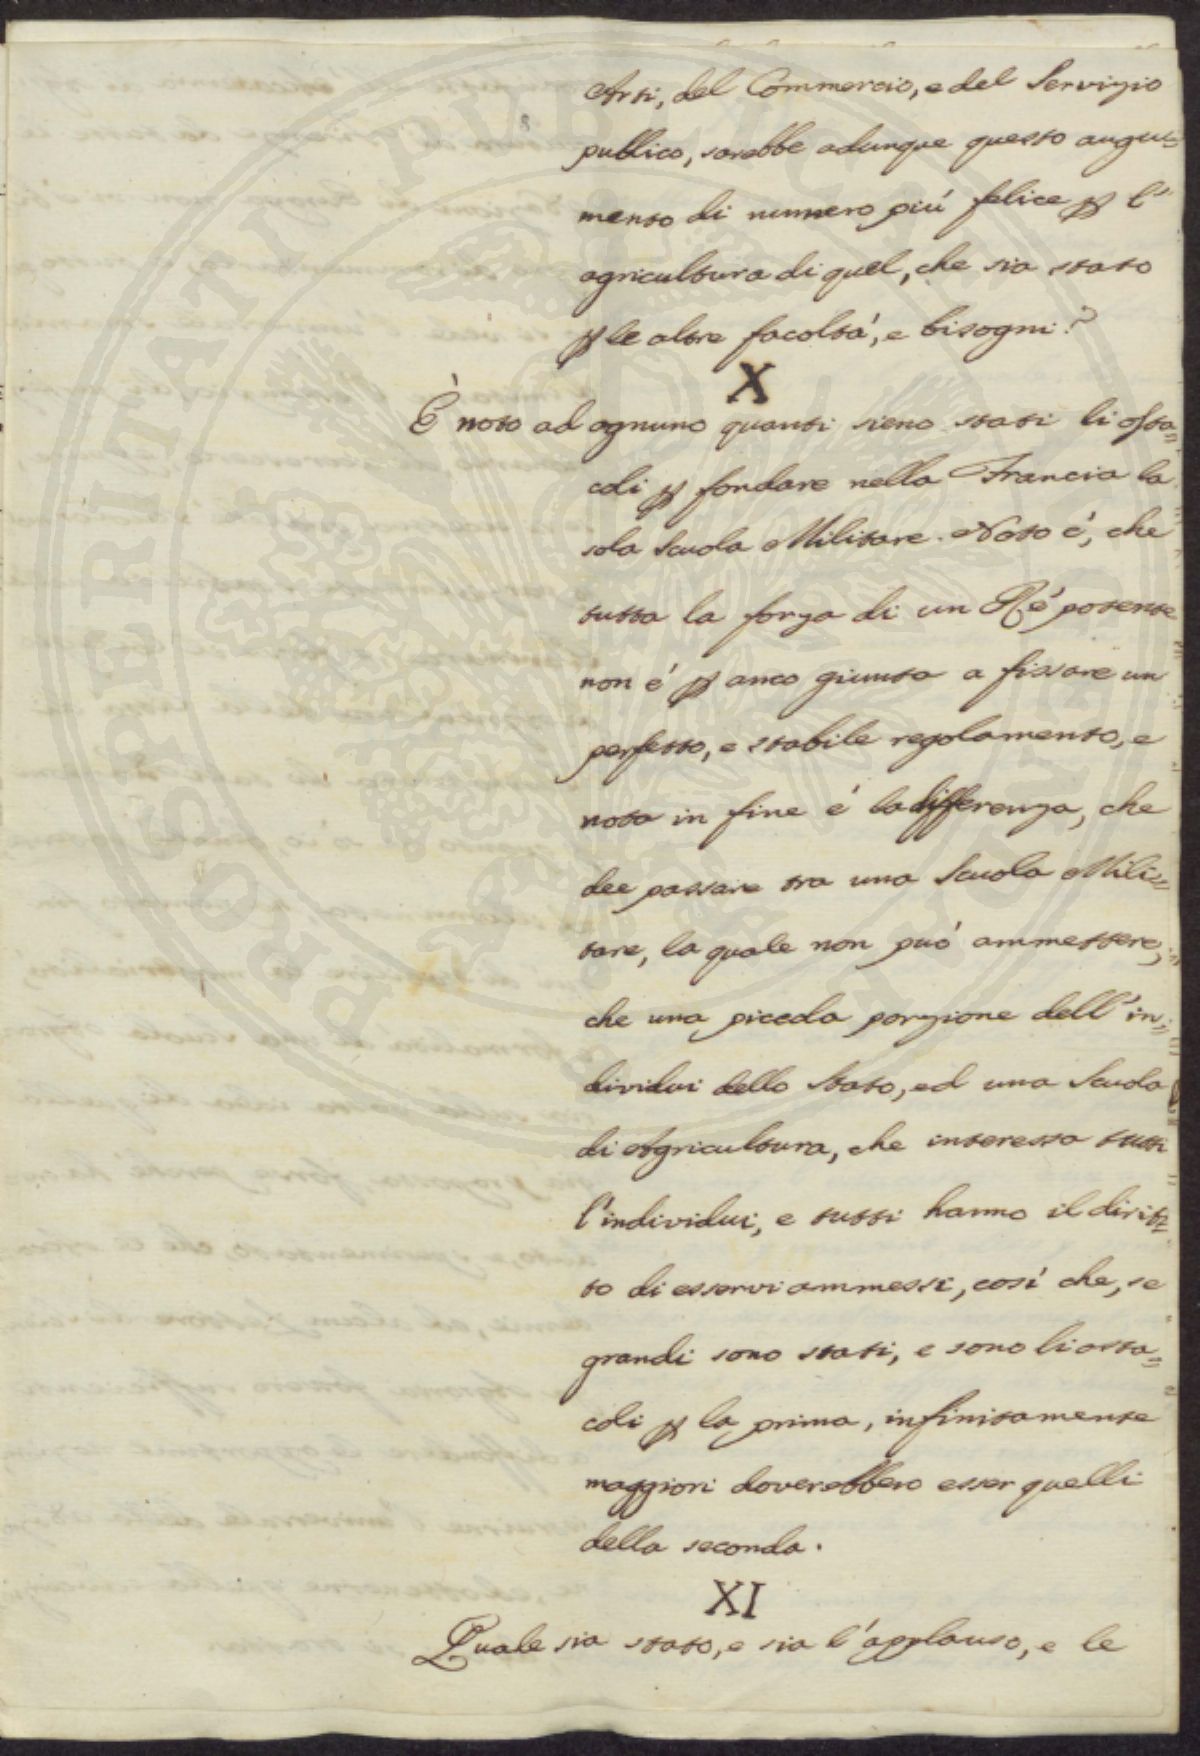 Arti, del Commercio, e del Servizio
publico, sarebbe adunque questo augu=
mento di numero piú felice ꝑ l'
agricultura di quel, che sia stato
ꝑ le altre facoltá, e bisogni?
X
È noto ad ognuno quanti sieno stati li osta=
coli ꝑ fondare nella Francia la
sola Scuola Militare. Noto é, che
tutta la forza di un Ré potente
non é ꝑ anco giunta a fissare un
perfetto, e stabile regolamento, e
nota in fine é la differenza, che
dee passare tra una Scuola Mili=
tare, la quale non puó ammettere,
che una piccola porzione dell' in=
dividui dello Stato, ed una Scuola
di Agricultura, che interessa tutti
l'individui, e tutti hanno il dirit=
to di esservi ammessi, cosí che, se
grandi sono stati, e sono li osta=
coli ꝑ la prima, infinitamente
maggiori doverebbero esser quelli
della seconda.
XI
Quale sia stato, e sia l'applauso, e le
PROSPERITATI PUBLICAE AUGENDAE